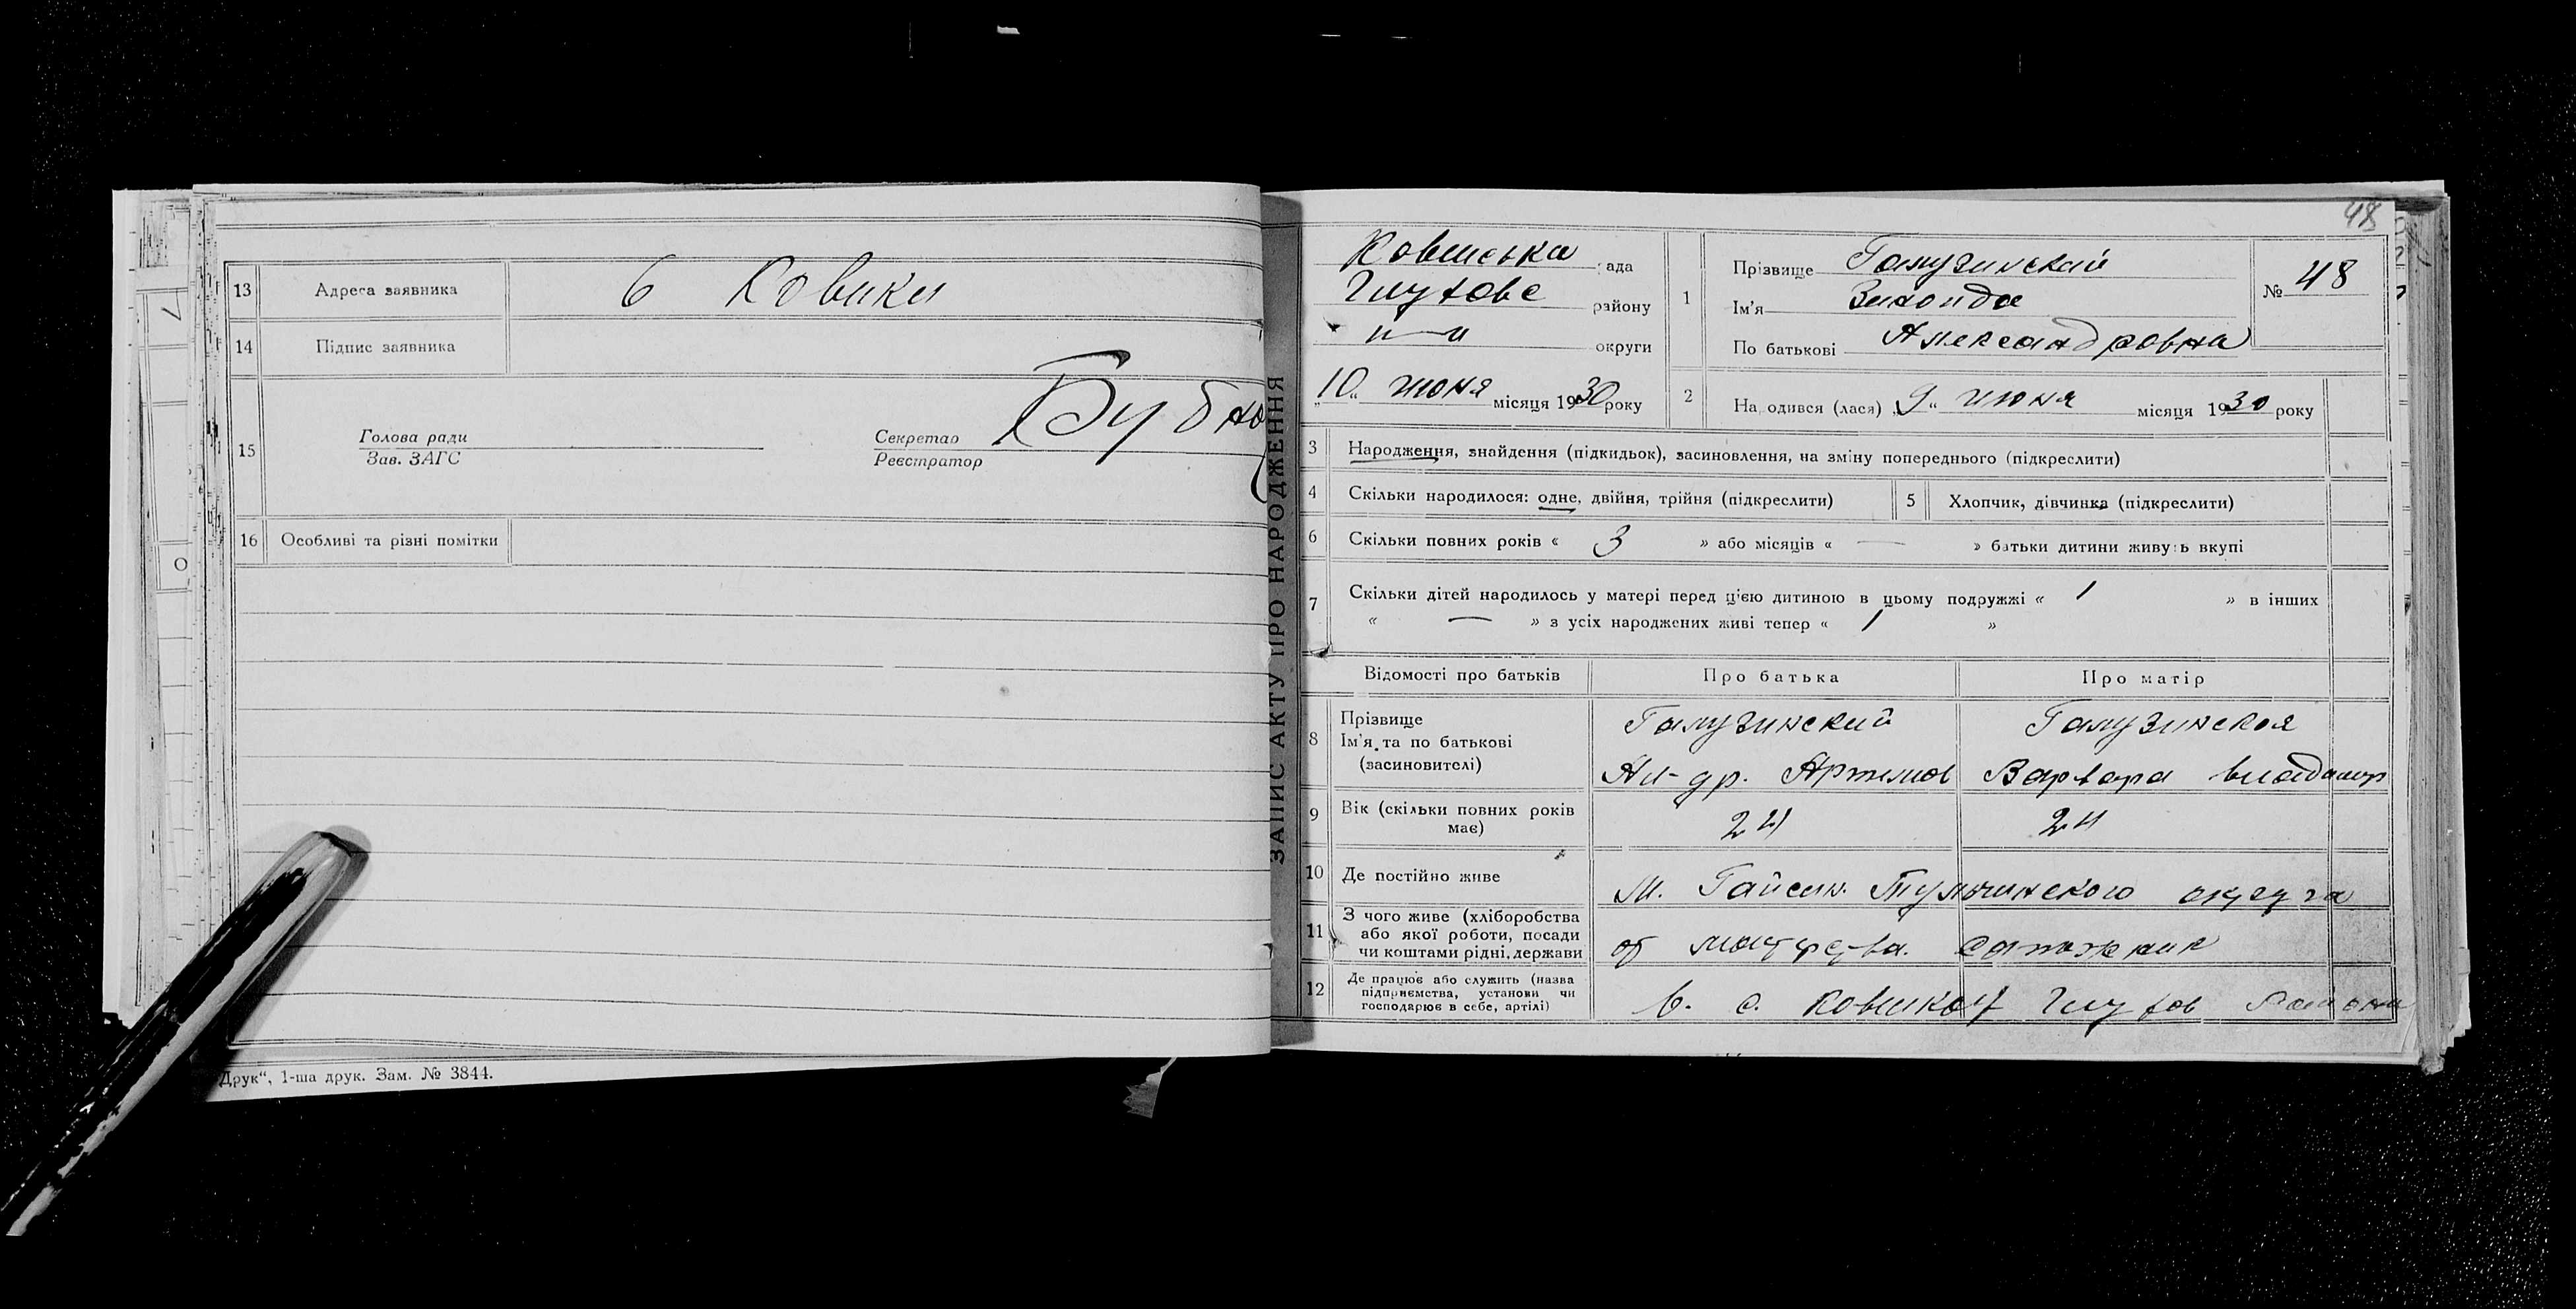 13 Адреса заявника
6 Ковшки
14 Підпис заявника
15 Голова ради
Зав. ЗАГС
Секретар
Реєстратор
Бубно
16 Особливі та різні помітки
Друк“, 1-ша друк. Зам. № 3844.
ЗАПИС АКТУ ПРО НАРОДЖЕННЯ
48
рада
району
п—и округи
„10“ июня місяця 1930 року
1 Прізвище Галузинский
Ім'я
По батькові Александровна
№ 48
2 Народився (лася) „9“ июня місяця 1930 року
3 Народження, знайдення (підкидьок), засиновлення, на зміну попереднього (підкреслити)
4 Скільки народилося: одне, двійня, трійня (підкреслити)
5 Хлопчик, дівчинка (підкреслити)
6 Скільки повних років « 3 » або місяців « — » батьки дитини живуть вкупі
7 Скільки дітей народилось у матері перед цією дитиною в цьому подружжі « 1 » в інших
« — » з усіх народжених живі тепер « 1 »
Відомості про батьків
Про батька
Про матір
8 Прізвище
Ім'я та по батькові
(засиновителі)
Галузинский
Ал-др. Артемов
Галузинская
Варвара Владимир
9 Вік (скільки повних років
має)
24
24
10 Де постійно живе
м. Гайсин. Тульчинского округа
11 З чого живе (хліборобства
або якої роботи, посади
чи коштами рідні, держави
от сапожник
12 Де працює або служить (назва
підприємства, установи чи
господарює в себе, артілі)
В. с. района